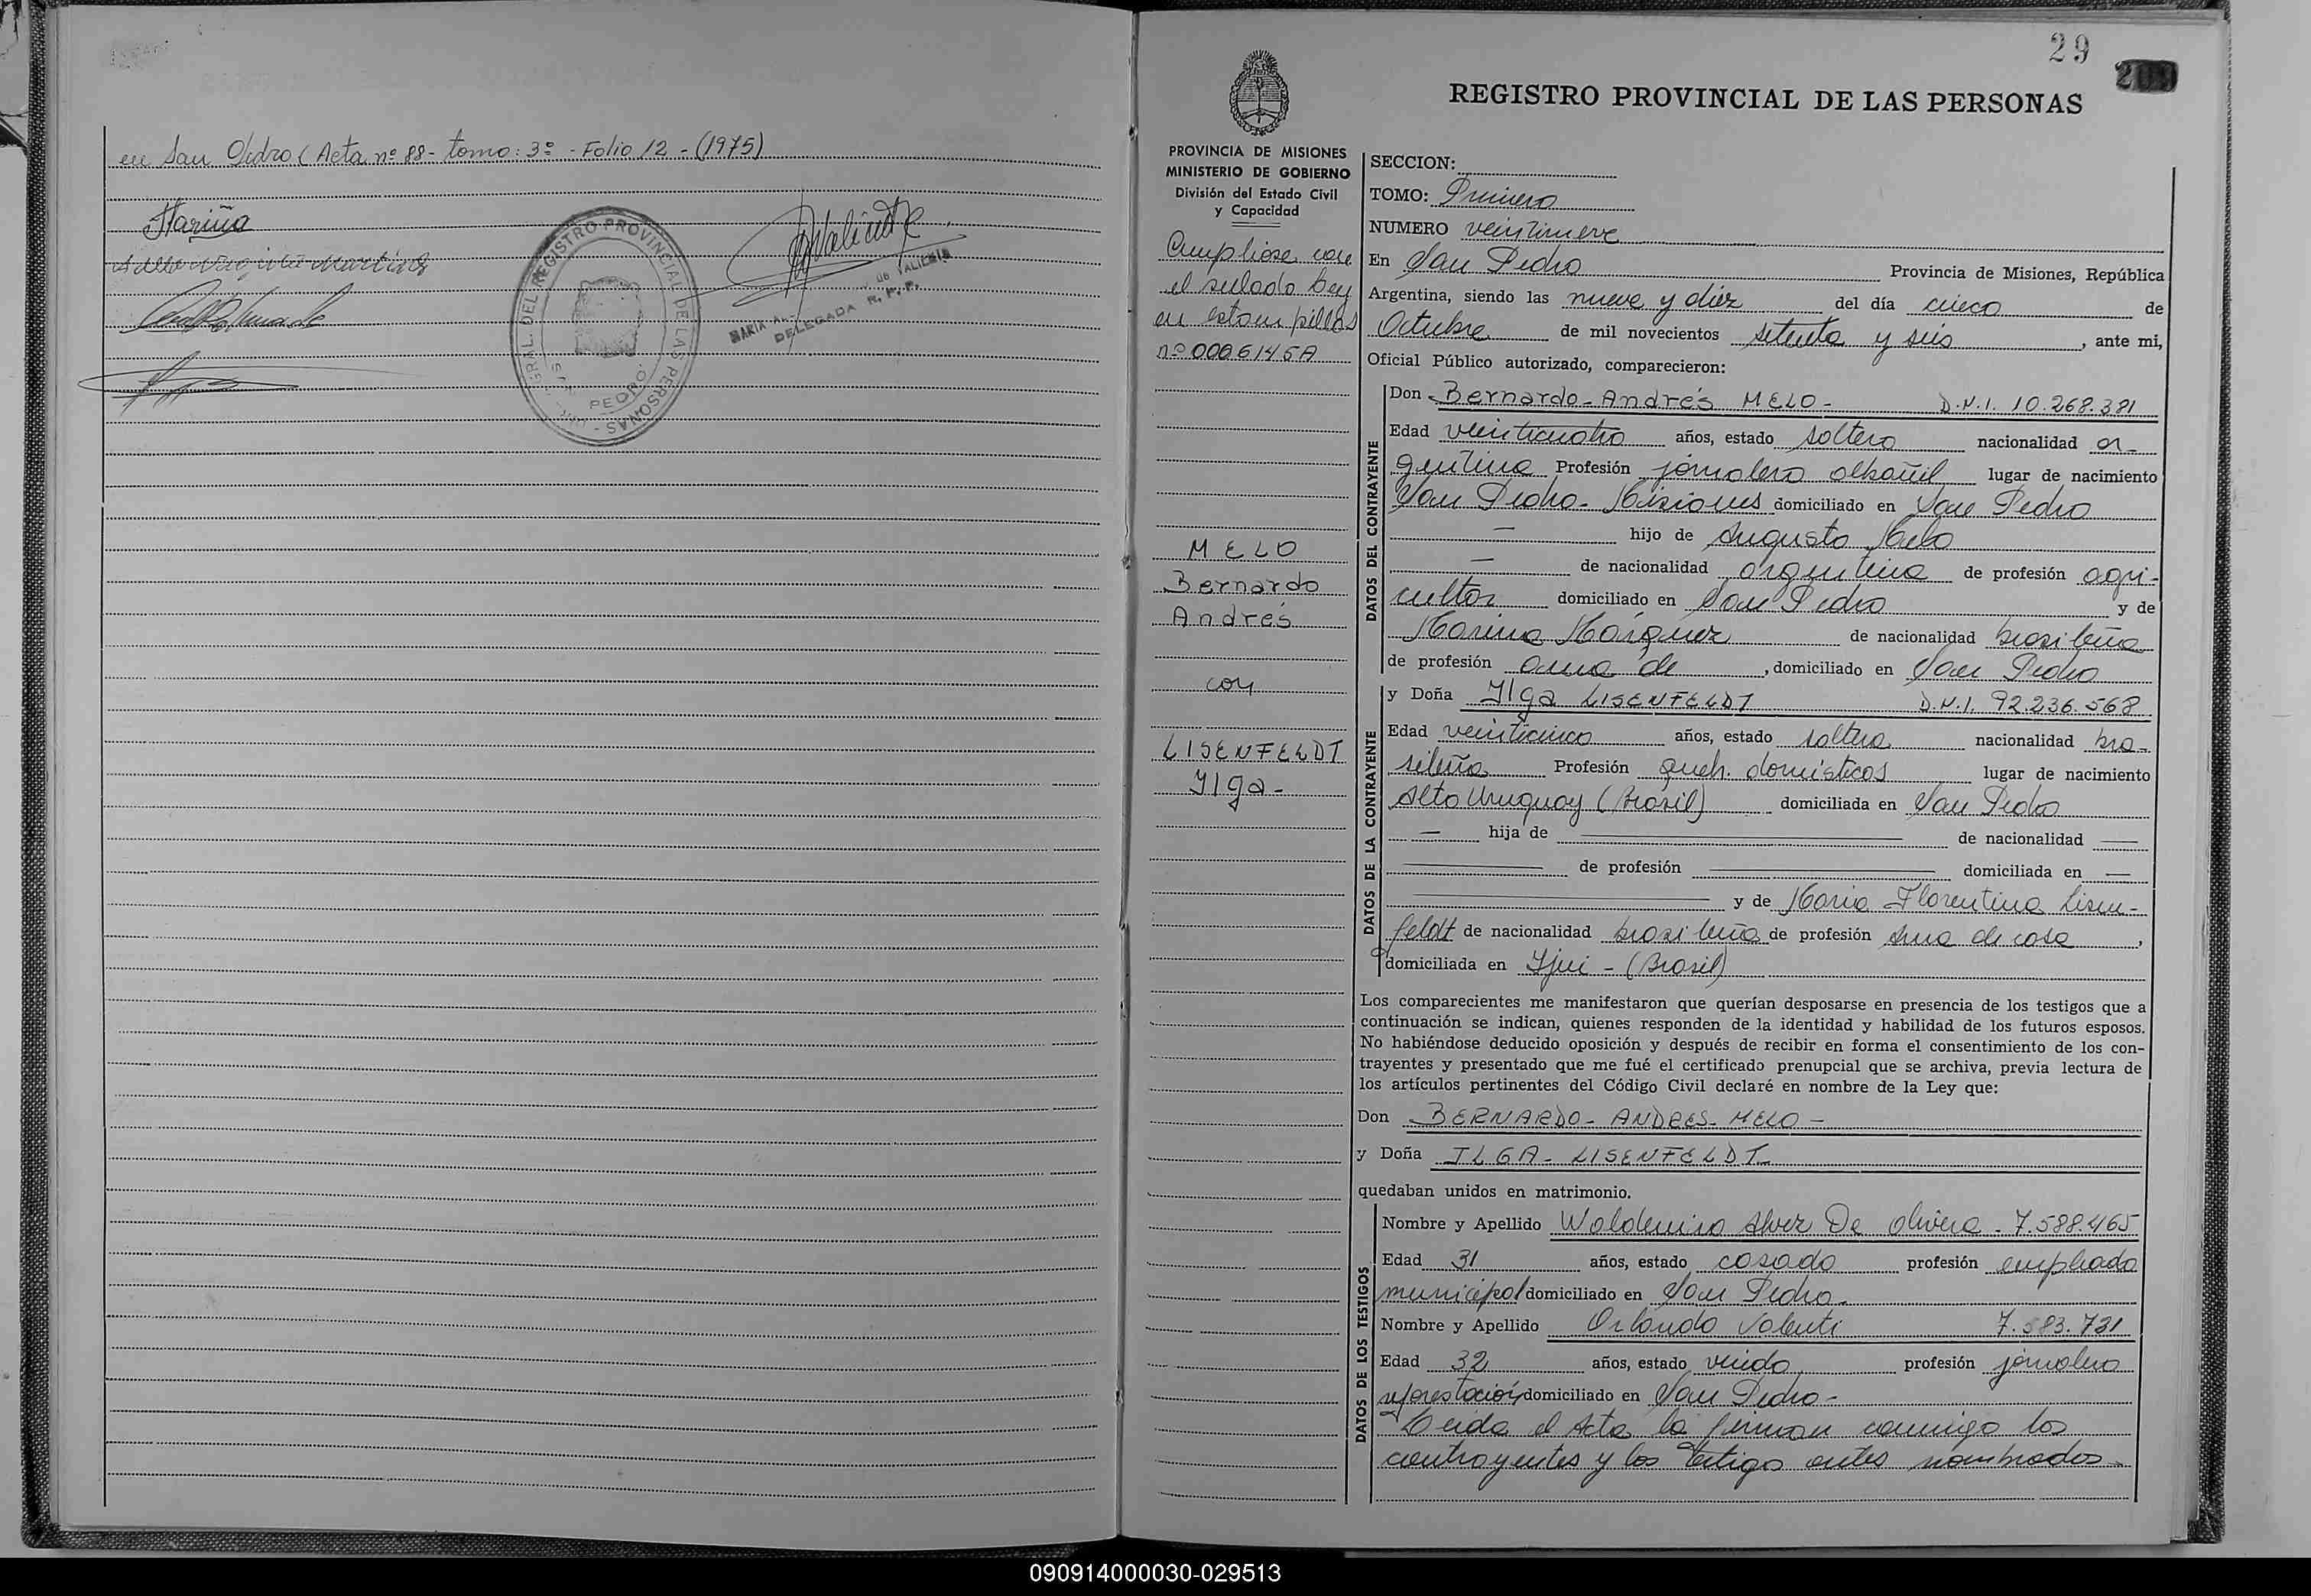 en San Pedro (Acta nº 88 - tomo: 3º - Folio 12 - (1975)
Mariño
REGISTRO PROVINCIAL DE LAS PERSONAS
PEDRO
DELEGADA R. P. P.
29
209
REGISTRO PROVINCIAL DE LAS PERSONAS
PROVINCIA DE MISIONES
MINISTERIO DE GOBIERNO
División del Estado Civil
y Capacidad
Cumpliose con
el sellado Ley
en estampillas
nº 0006145A
MELO
Bernardo
Andrés
con
LISENFELDT
Ilga -
SECCION:
TOMO: Primero
NUMERO veintinueve
En San Pedro Provincia de Misiones, República
Argentina, siendo las nueve y diez del día cinco de
Octubre de mil novecientos setenta y seis, ante mi,
Oficial Público autorizado, comparecieron:
DATOS DEL CONTRAYENTE
Don Bernardo - Andrés MELO - D.N.I. 10.268.381
Edad veinticuatro años, estado soltero nacionalidad ar-
gentina Profesión jornalero albañil lugar de nacimiento
San Pedro - Misiones domiciliado en San Pedro
— hijo de Augusto Melo
— de nacionalidad argentina de profesión agri-
cultor domiciliado en San Pedro y de
Marina Márquez de nacionalidad brasileña
de profesión ama de, domiciliado en San Pedro
DATOS DE LA CONTRAYENTE
y Doña Ilga LISENFELDT D.N.I. 92.236.568
Edad veinticinco años, estado soltera nacionalidad bra-
sileña Profesión queh. domésticos lugar de nacimiento
Alto Uruguay (Brasil) domiciliada en San Pedro
— hija de — de nacionalidad —
— de profesión — domiciliada en —
— y de Maria Florentina Lisen-
feldt de nacionalidad brasileña de profesión Ama de casa,
domiciliada en Ijui - (Brasil)
Los comparecientes me manifestaron que querían desposarse en presencia de los testigos que a
continuación se indican, quienes responden de la identidad y habilidad de los futuros esposos.
No habiéndose deducido oposición y después de recibir en forma el consentimiento de los con-
trayentes y presentado que me fué el certificado prenupcial que se archiva, previa lectura de
los artículos pertinentes del Código Civil declaré en nombre de la Ley que:
Don BERNARDO - ANDRES - MELO -
y Doña ILGA - LISENFELDT
quedaban unidos en matrimonio.
DATOS DE LOS TESTIGOS
Nombre y Apellido Waldemiro Alvez De Olivera - 7.588.465
Edad 31 años, estado casado profesión empleado
municipal domiciliado en San Pedro -
Nombre y Apellido Orlando Valenti 7.583.731
Edad 32 años, estado viudo profesión jornalero
reforestación domiciliado en San Pedro -
Leida el Acta la firman conmigo los
contrayentes y los testigo antes nombrados -
090914000030-029513